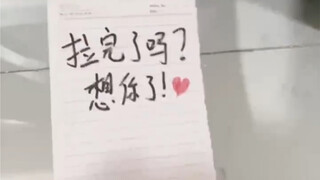 拉完了吗？
想你了！